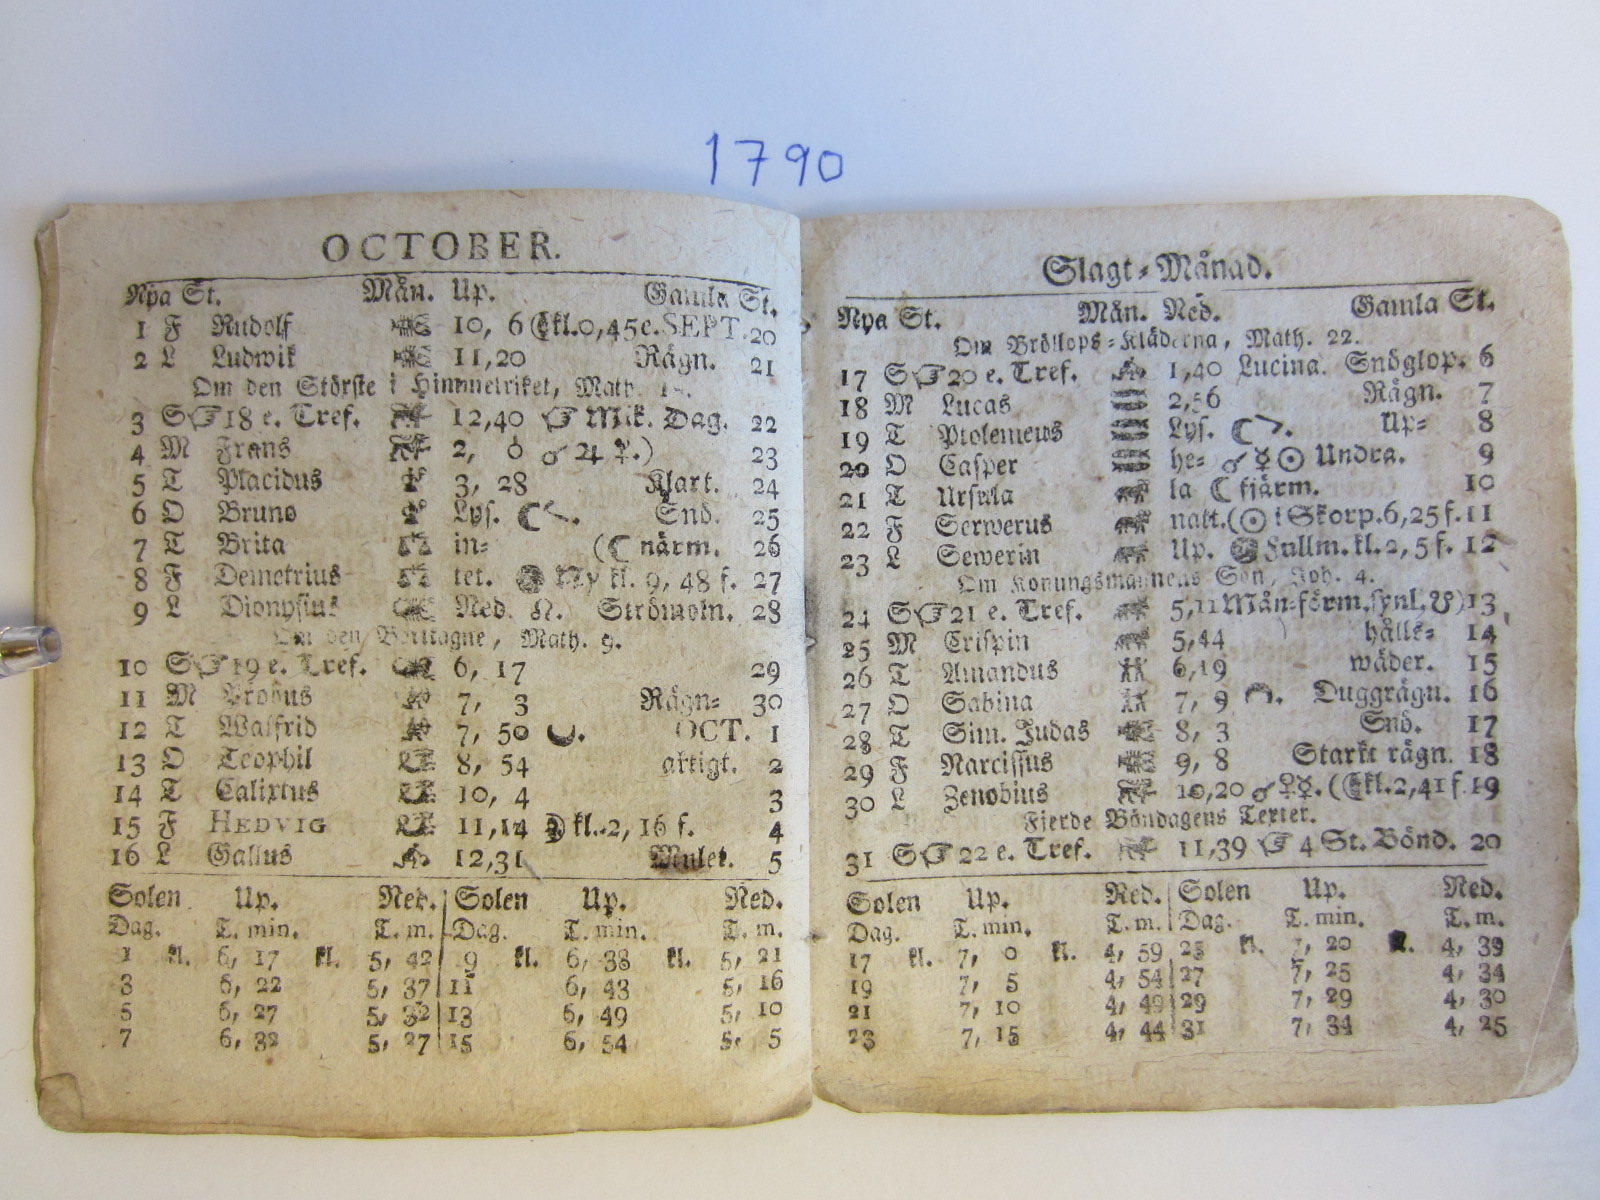 1790
OCTOBER.
Nya St. Mån. Up. Gamla St.
1 F Rudolf 10, 6 kl.0,45e. SEPT. 20
2 L Ludwik 11,20 Rägn. 21
Om den Störste i Himmelriket, Math.
3 S☞18 e. Tref. 12,40 ☞ Mik. Dag. 22
4 M Frans 2, 0 ☌ ♃ ☿.) 23
5 T Placidus 3, 28 Klart. 24
6 O Bruno Lys. ☾ Snö. 25
7 T Brita in= (☾ närm. 26
8 F Demetrius tet. Ny kl. 9, 48 f. 27
9 L Dionysius Ned. ☊. Strömoln. 28
Om den Borttagne, Math. 9.
10 S☞19 e. Tref. 6, 17 29
11 M Probus 7, 3 Rägn= 30
12 T Walfrid 7, 50 OCT. 1
13 O Teophil 8, 54 aktigt. 2
14 T Calixtus 10, 4 3
15 F HEDVIG 11,14 kl. 2, 16 f. 4
16 L Gallus 12,31 Mulet. 5
Solen Up. Ned. Solen Up. Ned.
Dag. T. min. T. m. Dag. T. min. T. m.
1 kl. 6, 17 kl. 5, 42 9 kl. 6, 38 kl. 5, 21
3 6, 22 5, 37 11 6, 43 5, 16
5 6, 27 5, 32 13 6, 49 5, 10
7 6, 32 5, 27 15 6, 54 5, 5
Slagt=Månad.
Nya St. Mån. Ned. Gamla St.
Om Bröllops=Kläderna, Math. 22.
17 S☞20 e. Tref. 1,40 Lucina. Snöglop. 6
18 M Lucas 2,56 Rägn. 7
19 T Ptolemeus Lys. ☾ Up= 8
20 O Casper he= ☌ ☿ ☉ Undra. 9
21 T Ursula la ☾ fjärm. 10
22 F Serwerus natt. (☉ i Skorp. 6,25 f. 11
23 L Sewerin Up. Fullm. kl. 2, 5 f. 12
Om Konungsmannens Son, Joh. 4.
24 S☞21 e. Tref. 5,11 Mån=förm. synl. ☋) 13
25 M Crispin 5,44 hålls= 14
26 T Amandus 6,19 wäder. 15
27 O Sabina 7, 9 Duggrägn. 16
28 T Sim. Judas 8, 3 Snö. 17
29 F Narcissus 9, 8 Starkt rägn. 18
30 L Zenobius 10,20 ☌ ♀ ☿. ( kl. 2,41 f. 19
Fjerde Böndagens Texter.
31 S☞22 e. Tref. 11,39 ☞ 4 St. Bönd. 20
Solen Up. Ned. Solen Up. Ned.
Dag. T. min. T. m. Dag. T. min. T. m.
17 kl. 7, 0 kl. 4, 59 25 kl. 7, 20 kl. 4, 39
19 7, 5 4, 54 27 7, 25 4, 34
21 7, 10 4, 49 29 7, 29 4, 30
23 7, 15 4, 44 31 7, 34 4, 25